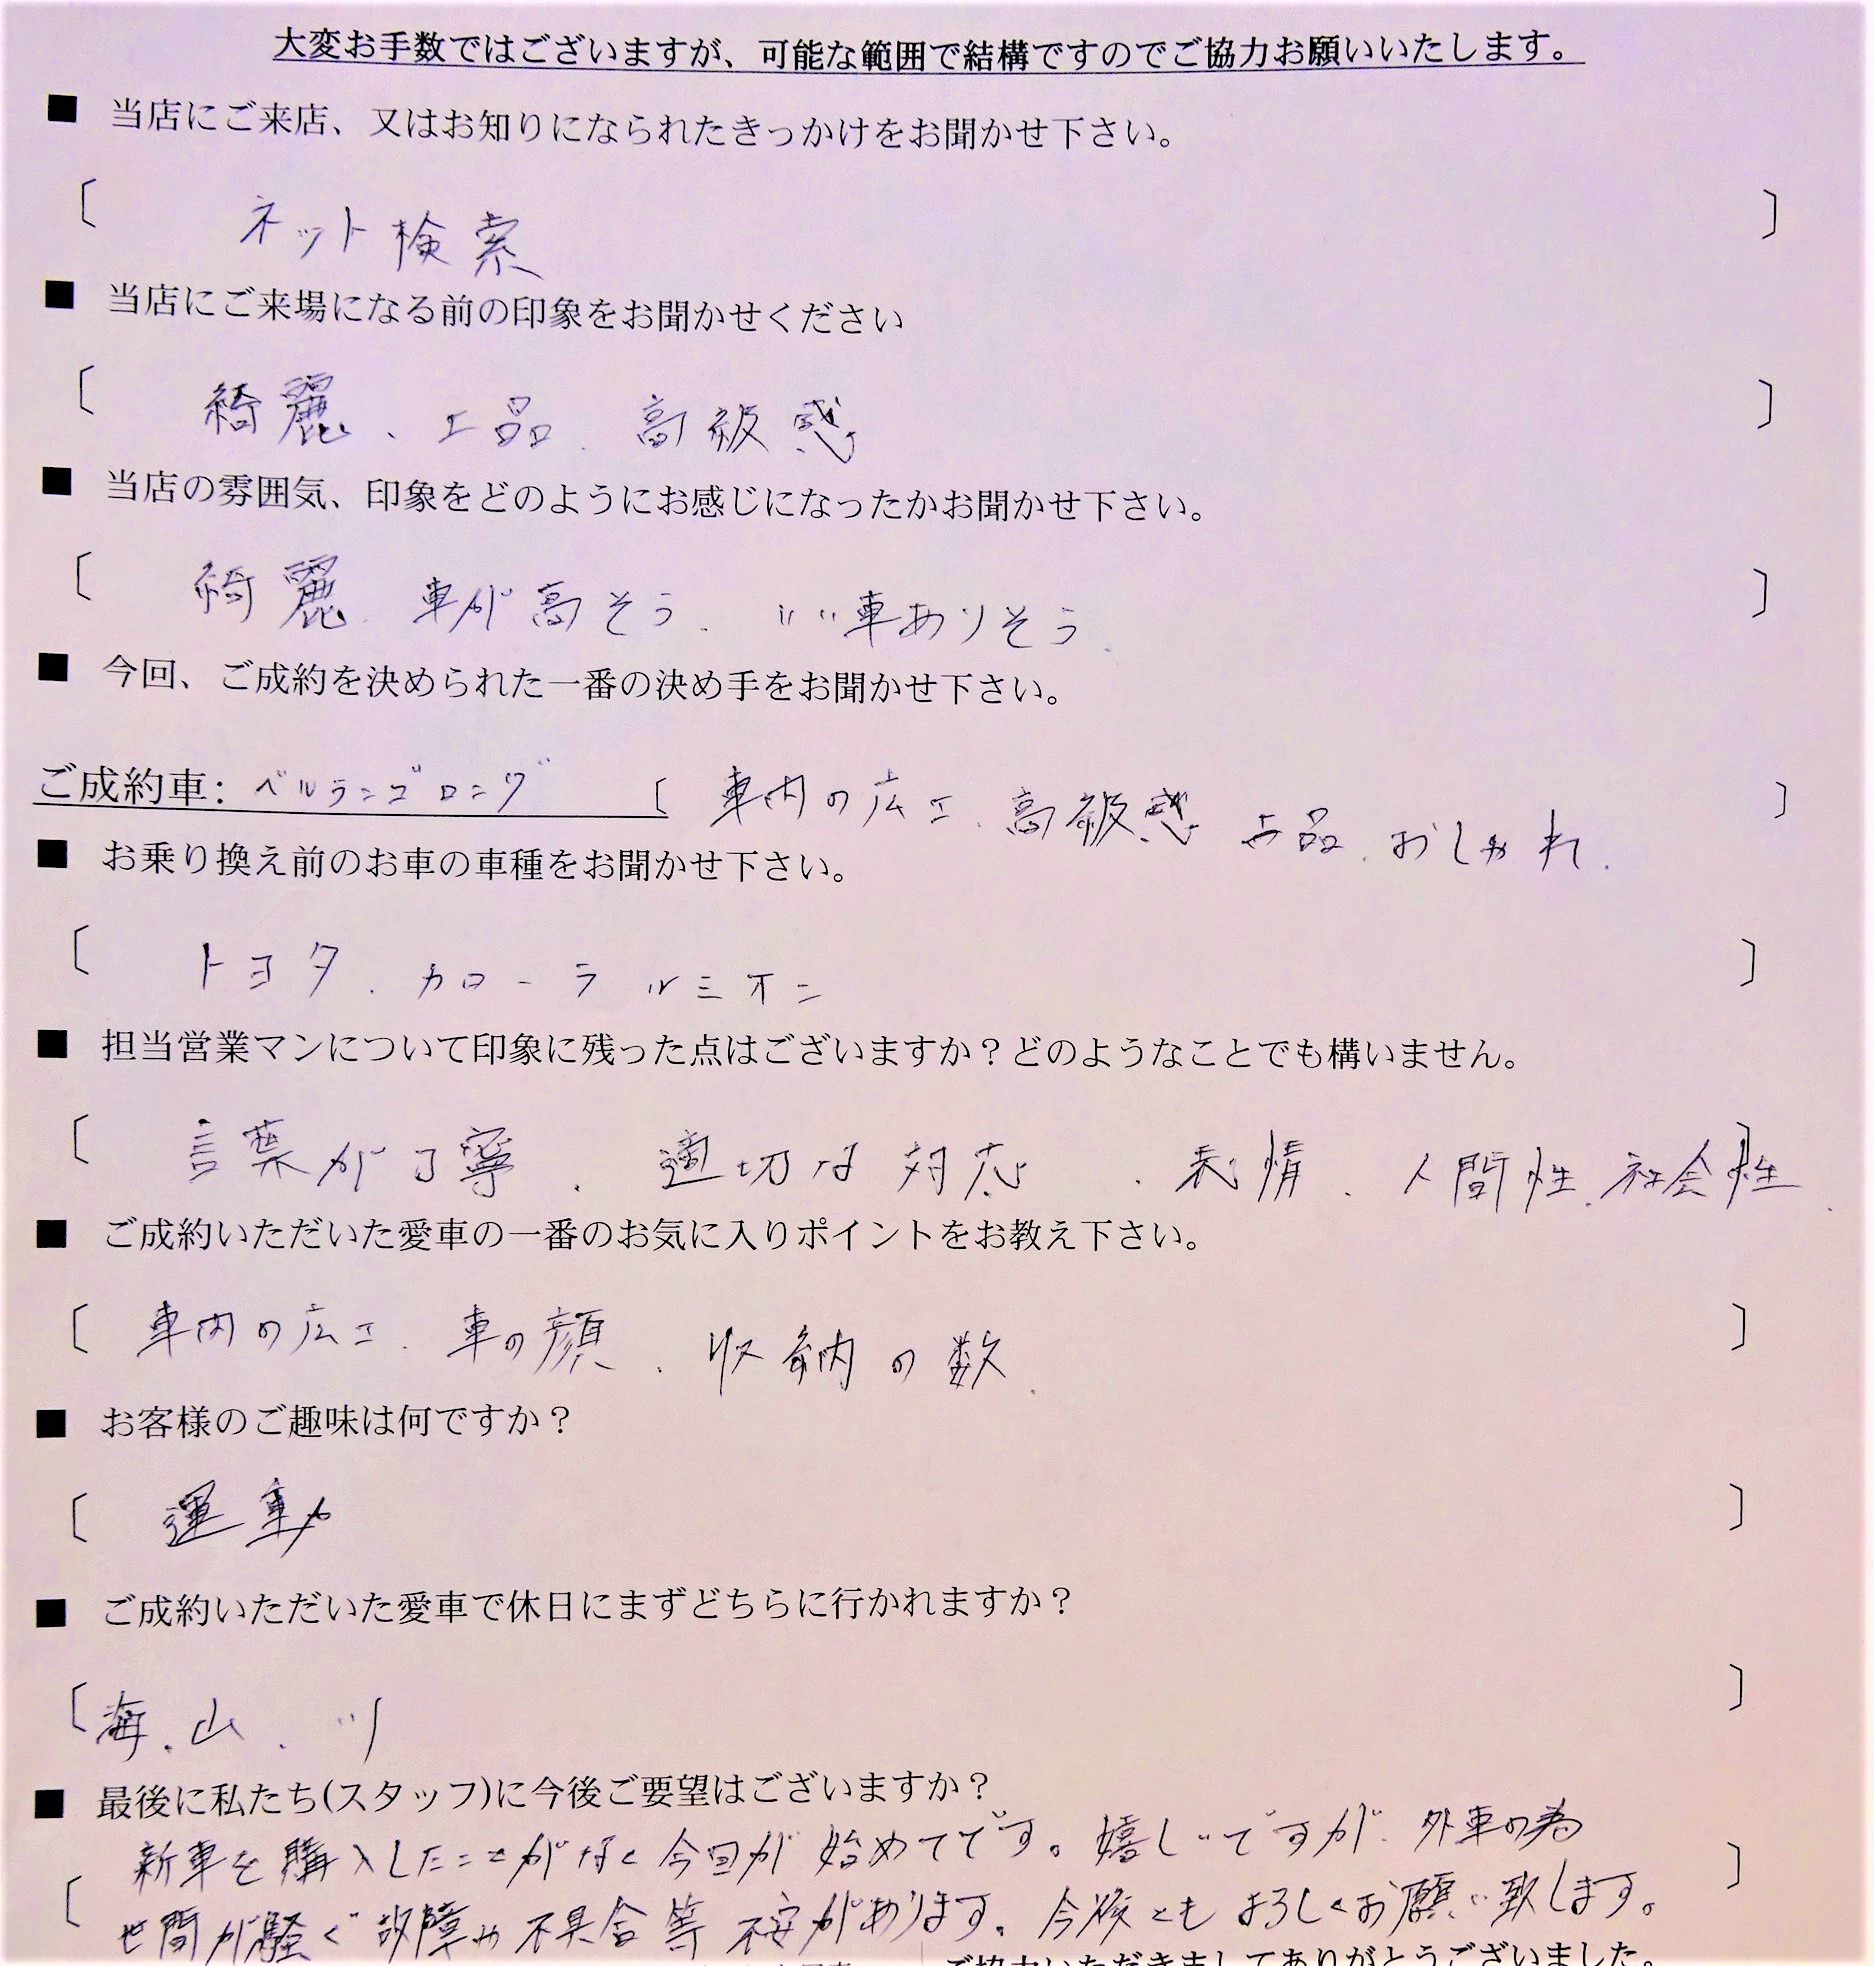 大変お手数ではございますが、可能な範囲で結構ですのでご協力お願いいたします。
■ 当店にご来店、又はお知りになられたきっかけをお聞かせ下さい。
〔 ネット検索 〕
■ 当店にご来場になる前の印象をお聞かせください
〔 綺麗、上品、高級感 〕
■ 当店の雰囲気、印象をどのようにお感じになったかお聞かせ下さい。
〔 綺麗、車が高そう、いい車ありそう、 〕
■ 今回、ご成約を決められた一番の決め手をお聞かせ下さい。
ご成約車：ベルランゴロング 〔 車内の広さ、高級感 上品、おしゃれ、 〕
■ お乗り換え前のお車の車種をお聞かせ下さい。
〔 トヨタ、カローラ ルミオン 〕
■ 担当営業マンについて印象に残った点はございますか？どのようなことでも構いません。
〔 言葉が丁寧、適切な対応、表情、人間性、社会性、 〕
■ ご成約いただいた愛車の一番のお気に入りポイントをお教え下さい。
〔 車内の広さ、車の顔、収納の数、 〕
■ お客様のご趣味は何ですか？
〔 運動 〕
■ ご成約いただいた愛車で休日にまずどちらに行かれますか？
〔 海、山、川 〕
■ 最後に私たち(スタッフ)に今後ご要望はございますか？
〔 新車を購入したことがなく今回が始めてです。嬉しいですが、外車の為
世間が騒ぐ故障や不具合等不安があります。今後ともよろしくお願い致します。 〕
ご協力いただきましてありがとうございました。